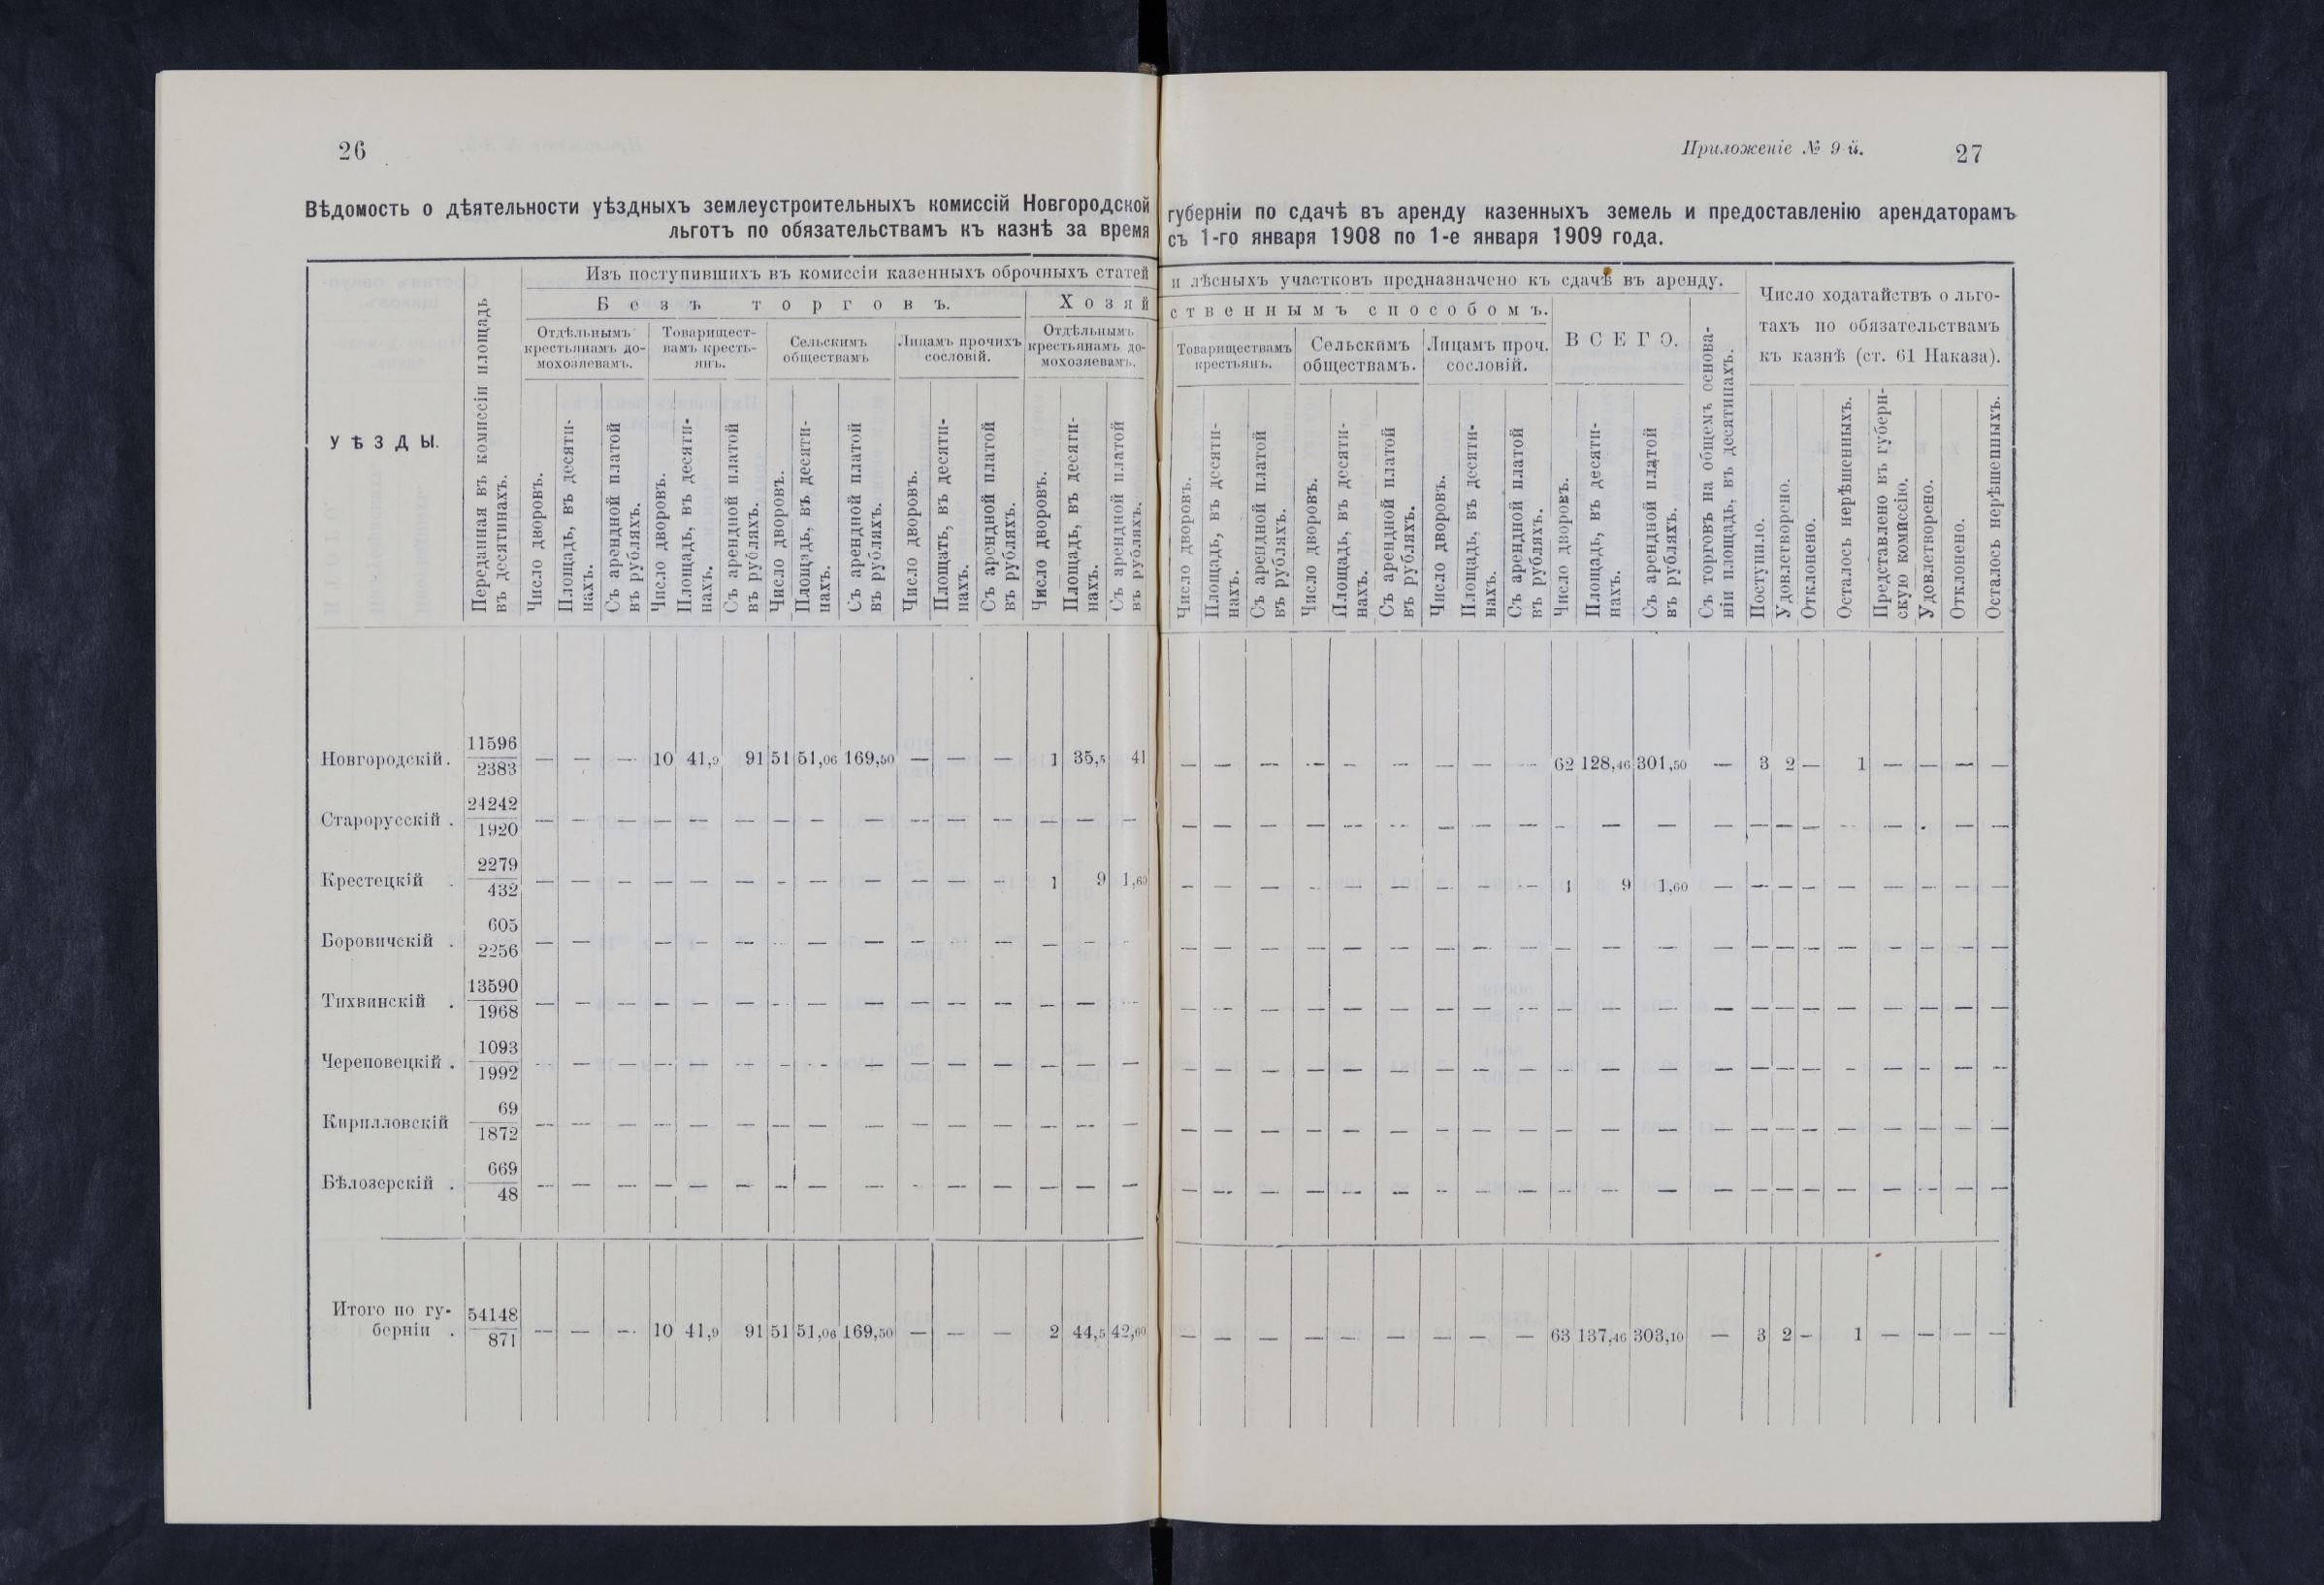 26
Приложеніе № 9-й.
27
Вѣдомость о дѣятельности уѣздныхъ землеустроительныхъ комиссій Новгородской губерніи по сдачѣ въ аренду казенныхъ земель и предоставленію арендаторамъ
льготъ по обязательствамъ къ казнѣ за время съ 1-го января 1908 по 1-е января 1909 года.
УѢЗДЫ.
Переданная въ комиссіи площадь
въ десятинахъ.
Изъ поступившихъ въ комиссіи казенныхъ оброчныхъ статей и лѣсныхъ участковъ предназначено къ сдачѣ въ аренду.
Безъ торговъ.
Хозяйственнымъ способомъ.
Отдѣльнымъ
крестьянамъ до-
мохозяевамъ.
Товарищест-
вамъ кресть-
янъ.
Сельскимъ
обществамъ
Лицамъ прочихъ
сословій.
Отдѣльнымъ
крестьянамъ до-
мохозяевамъ.
Товариществамъ
крестьянъ.
Сельскимъ
обществамъ.
Лицамъ проч.
сословій.
ВСЕГО.
Съ торговъ на общемъ основа-
ніи площадь, въ десятинахъ.
Число ходатайствъ о льго-
тахъ по обязательствамъ
къ казнѣ (ст. 61 Наказа).
Число дворовъ.
Площадь, въ десяти-
нахъ.
Съ арендной платой
въ рубляхъ.
Число дворовъ.
Площадь, въ десяти-
нахъ.
Съ арендной платой
въ рубляхъ.
Число дворовъ.
Площадь, въ десяти-
нахъ.
Съ арендной платой
въ рубляхъ.
Число дворовъ.
Площать, въ десяти-
нахъ.
Съ арендной платой
въ рубляхъ.
Число дворовъ.
Площадь, въ десяти-
нахъ.
Съ арендной платой
въ рубляхъ.
Число дворовъ.
Площадь, въ десяти-
нахъ.
Съ арендной платой
въ рубляхъ.
Число дворовъ.
Площадь, въ десяти-
нахъ.
Съ арендной платой
въ рубляхъ.
Число дворовъ.
Площадь, въ десяти-
нахъ.
Съ арендной платой
въ рубляхъ.
Число дворовъ.
Площадь, въ десяти-
нахъ.
Съ арендной платой
въ рубляхъ.
Поступило.
Удовлетворено.
Отклонено.
Осталось нерѣшенныхъ.
Представлено въ губерн-
скую комиссію.
Удовлетворено.
Отклонено.
Осталось нерѣшенныхъ.
Новгородскій. 11596/2383 — — — 10 41,9 91 51 51,06 169,50 — — — 1 35,5 41 — — — — — — — — — 62 128,46 301,50 — 3 2 — 1 — — — —
Старорусскій . 24242/1920 — — — — — — — — — — — — — — — — — — — — — — — — — — — — — — — — — — — —
Крестецкій . 2279/432 — — — — — — — — — — — — 1 9 1,60 — — — — — — — — — 1 9 1,60 — — — — — — — — —
Боровичскій . 605/2256 — — — — — — — — — — — — — — — — — — — — — — — — — — — — — — — — — — —
Тихвинскій . 13590/1968 — — — — — — — — — — — — — — — — — — — — — — — — — — — — — — — — — — — —
Череповецкій . 1093/1992 — — — — — — — — — — — — — — — — — — — — — — — — — — — — — — — — — — — —
Кирилловскій 69/1872 — — — — — — — — — — — — — — — — — — — — — — — — — — — — — — — — — — — —
Бѣлозерскій . 669/48 — — — — — — — — — — — — — — — — — — — — — — — — — — — — — — — — — — — —
Итого по гу-
берніи . 54148/871 — — — 10 41,9 91 51 51,06 169,50 — — — 2 44,5 42,60 — — — — — — — — — 63 137,46 303,10 — 3 2 — 1 — — — —